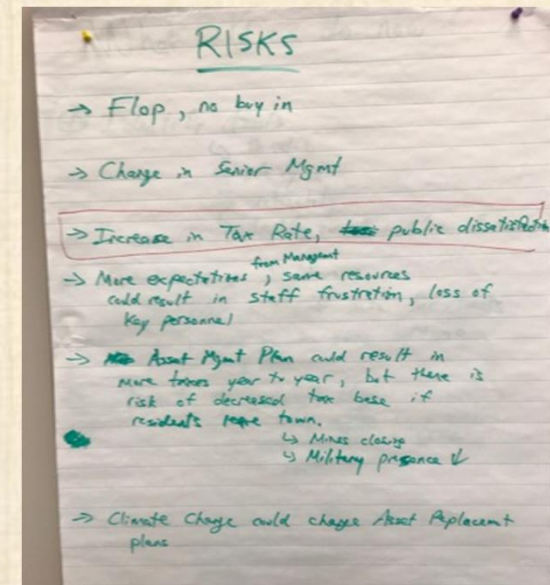 RISKS
→ Flop, no buy in
→ Change in Senior Mgmt
→ Increase in Tax Rate, public dissatisfaction
from Managemt
→ More expectations, same resources
could result in staff frustration, loss of
key personnel
→ Asset Mgmt Plan could result in
more taxes year to year, but there is
risk of decreased tax base if
residents leave town.
↳ Mines closing
↳ Military presence ↓
→ Climate Change could change Asset Replacemt
plans